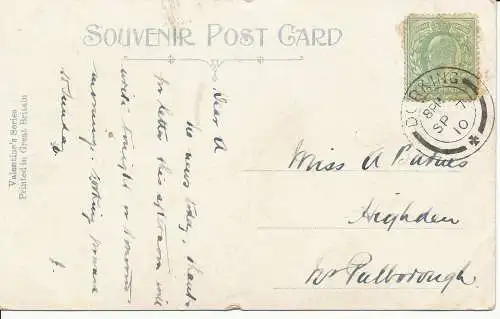 SOUVENIR POST CARD
Valentine's Series
Printed in Great Britain
DORKING
SP 7
10
Dear A
No news today, thanks
for letter this afternoon will
write tonight or tomorrow
morning. Nothing
Sunday
J.
Miss A Barnes
Highden
Nr Pulborough